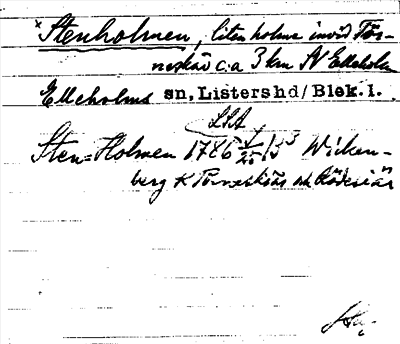 × Stenholmen, liten holme invid Tör-
neskär c:a 3 km SV Elleholm
Elleholms sn, Listershd/Blek.l.
LSA
Sten=Holmen 1786 13³ Wicken-
berg K Törneskär och